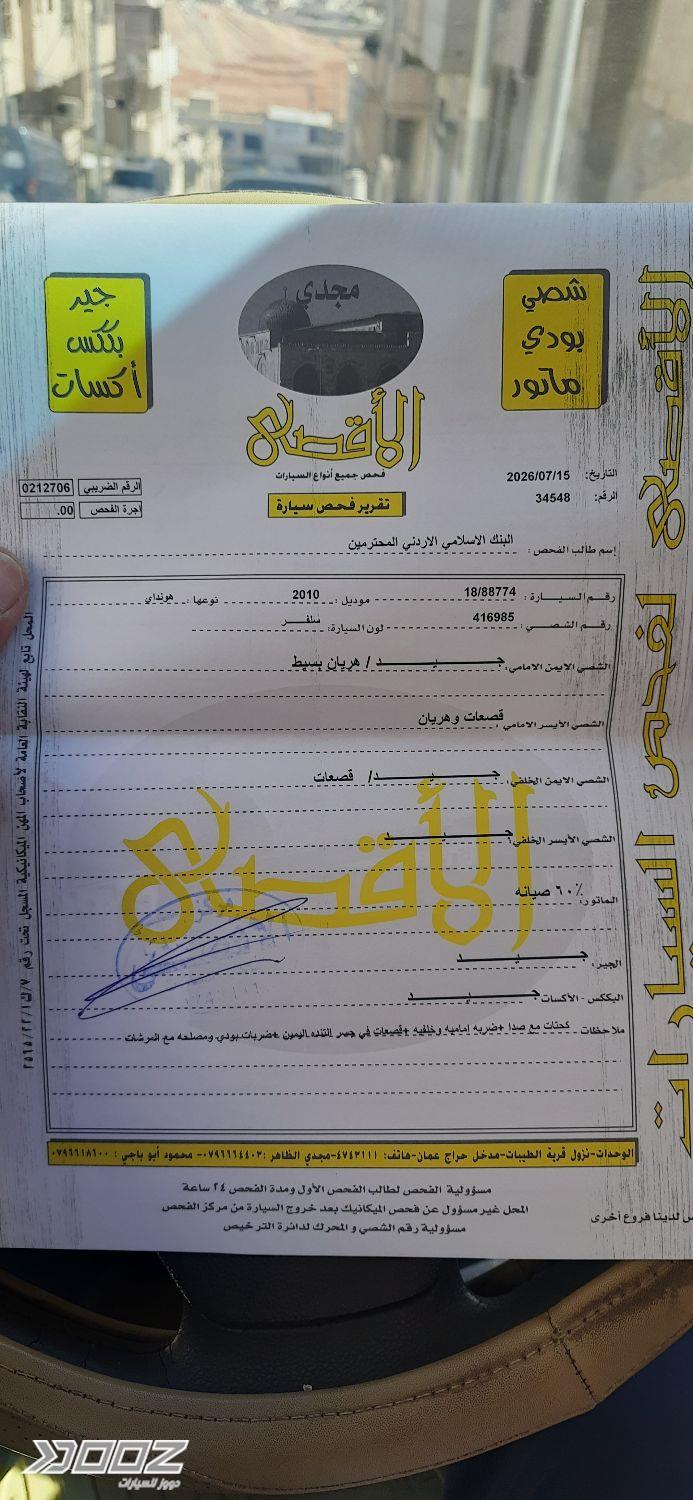 شصي
بودي
ماتور
مجدي
جير
بككس
أكسات
الأقصى
فحص جميع أنواع السيارات
تقرير فحص سيارة
التاريخ: 2026/07/15
الرقم: 34548
الرقم الضريبي 0212706
اجرة الفحص .00
إسم طالب الفحص: البنك الاسلامي الاردني المحترمين
رقم السيارة: 18/88774 موديل: 2010 نوعها: هونداي
رقم الشصي: 416985 لون السيارة: سلفر
الشصي الايمن الامامي: جيد / هريان بسيط
الشصي الأيسر الامامي: قصعات وهريان
الشصي الايمن الخلفي: جيد/ قصعات
الشصي الأيسر الخلفي: جيد
الماتور: ٦٠٪ صيانه
الجير: جيد
البككس - الأكسات: جيد
ملاحظات: كحتات مع صدا +ضربه اماميه وخلفيه +قصعات في جسر التنده اليمين +ضربات بودي ومصلحه مع المرشات
الوحدات-نزول قرية الطيبات-مدخل حراج عمان-هاتف: ٤٧٤٣١١١-مجدي الظاهر: ٠٧٩٦٦٦٤٤٠٣- محمود أبو باجي: ٠٧٩٦٦١٨٦٠٠
مسؤولية الفحص لطالب الفحص الأول ومدة الفحص ٢٤ ساعة
المحل غير مسؤول عن فحص الميكانيك بعد خروج السيارة من مركز الفحص
مسؤولية رقم الشصي و المحرك لدائرة الترخيص
لدينا فروع أخرى
الأقصى لفحص السيارات
المحل تابع لهيئة النقابة العامة لأصحاب المهن الميكانيكية المسجل تحت رقم
الأقصى
مركز
DOOZ
دووز للسيارات